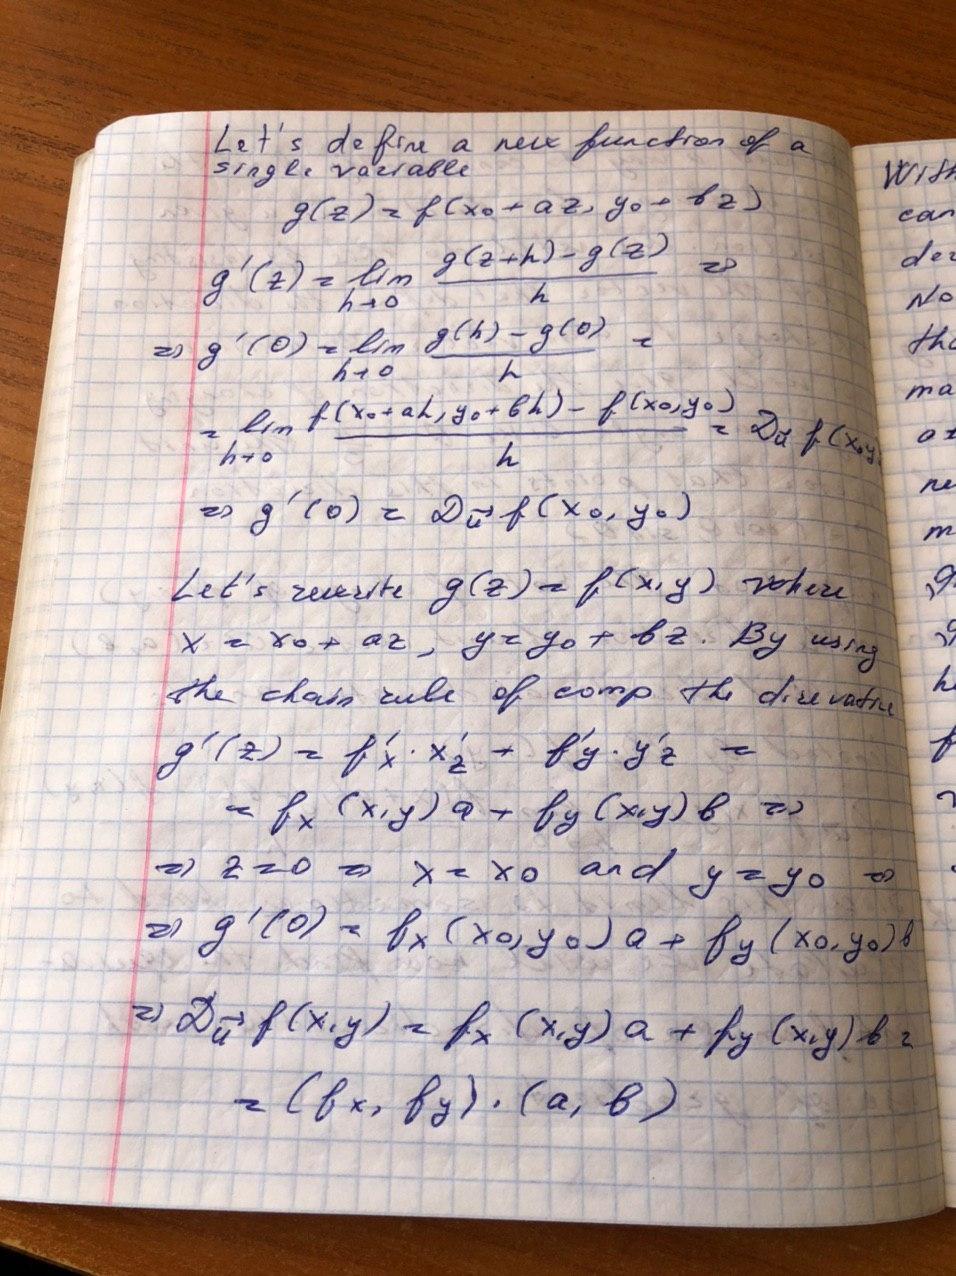 Let's define a new function of a
single variable
g(z) = f(x₀ + az, y₀ + bz)
g'(z) = lim h→0 (g(z+h) - g(z))/h ⇒
⇒ g'(0) = lim h→0 (g(h) - g(0))/h =
= lim h→0 (f(x₀+ah, y₀+bh) - f(x₀,y₀))/h = D_u⃗ f(x₀,y₀
⇒ g'(0) = D_u⃗ f(x₀, y₀)
Let's rewrite g(z) = f(x,y) where
x = x₀ + az, y = y₀ + bz. By using
the chain rule of comp the direvative
g'(z) = f'x · x'z + f'y · y'z =
= fx (x,y) a + fy (x,y) b ⇒
⇒ z=0 ⇒ x = x₀ and y = y₀ ⇒
⇒ g'(0) = fx (x₀,y₀) a + fy (x₀,y₀) b
⇒ D_u⃗ f(x,y) = fx (x,y) a + fy (x,y) b =
= (fx, fy) · (a, b)
With
can
der
No
tha
ma
at
ne
m